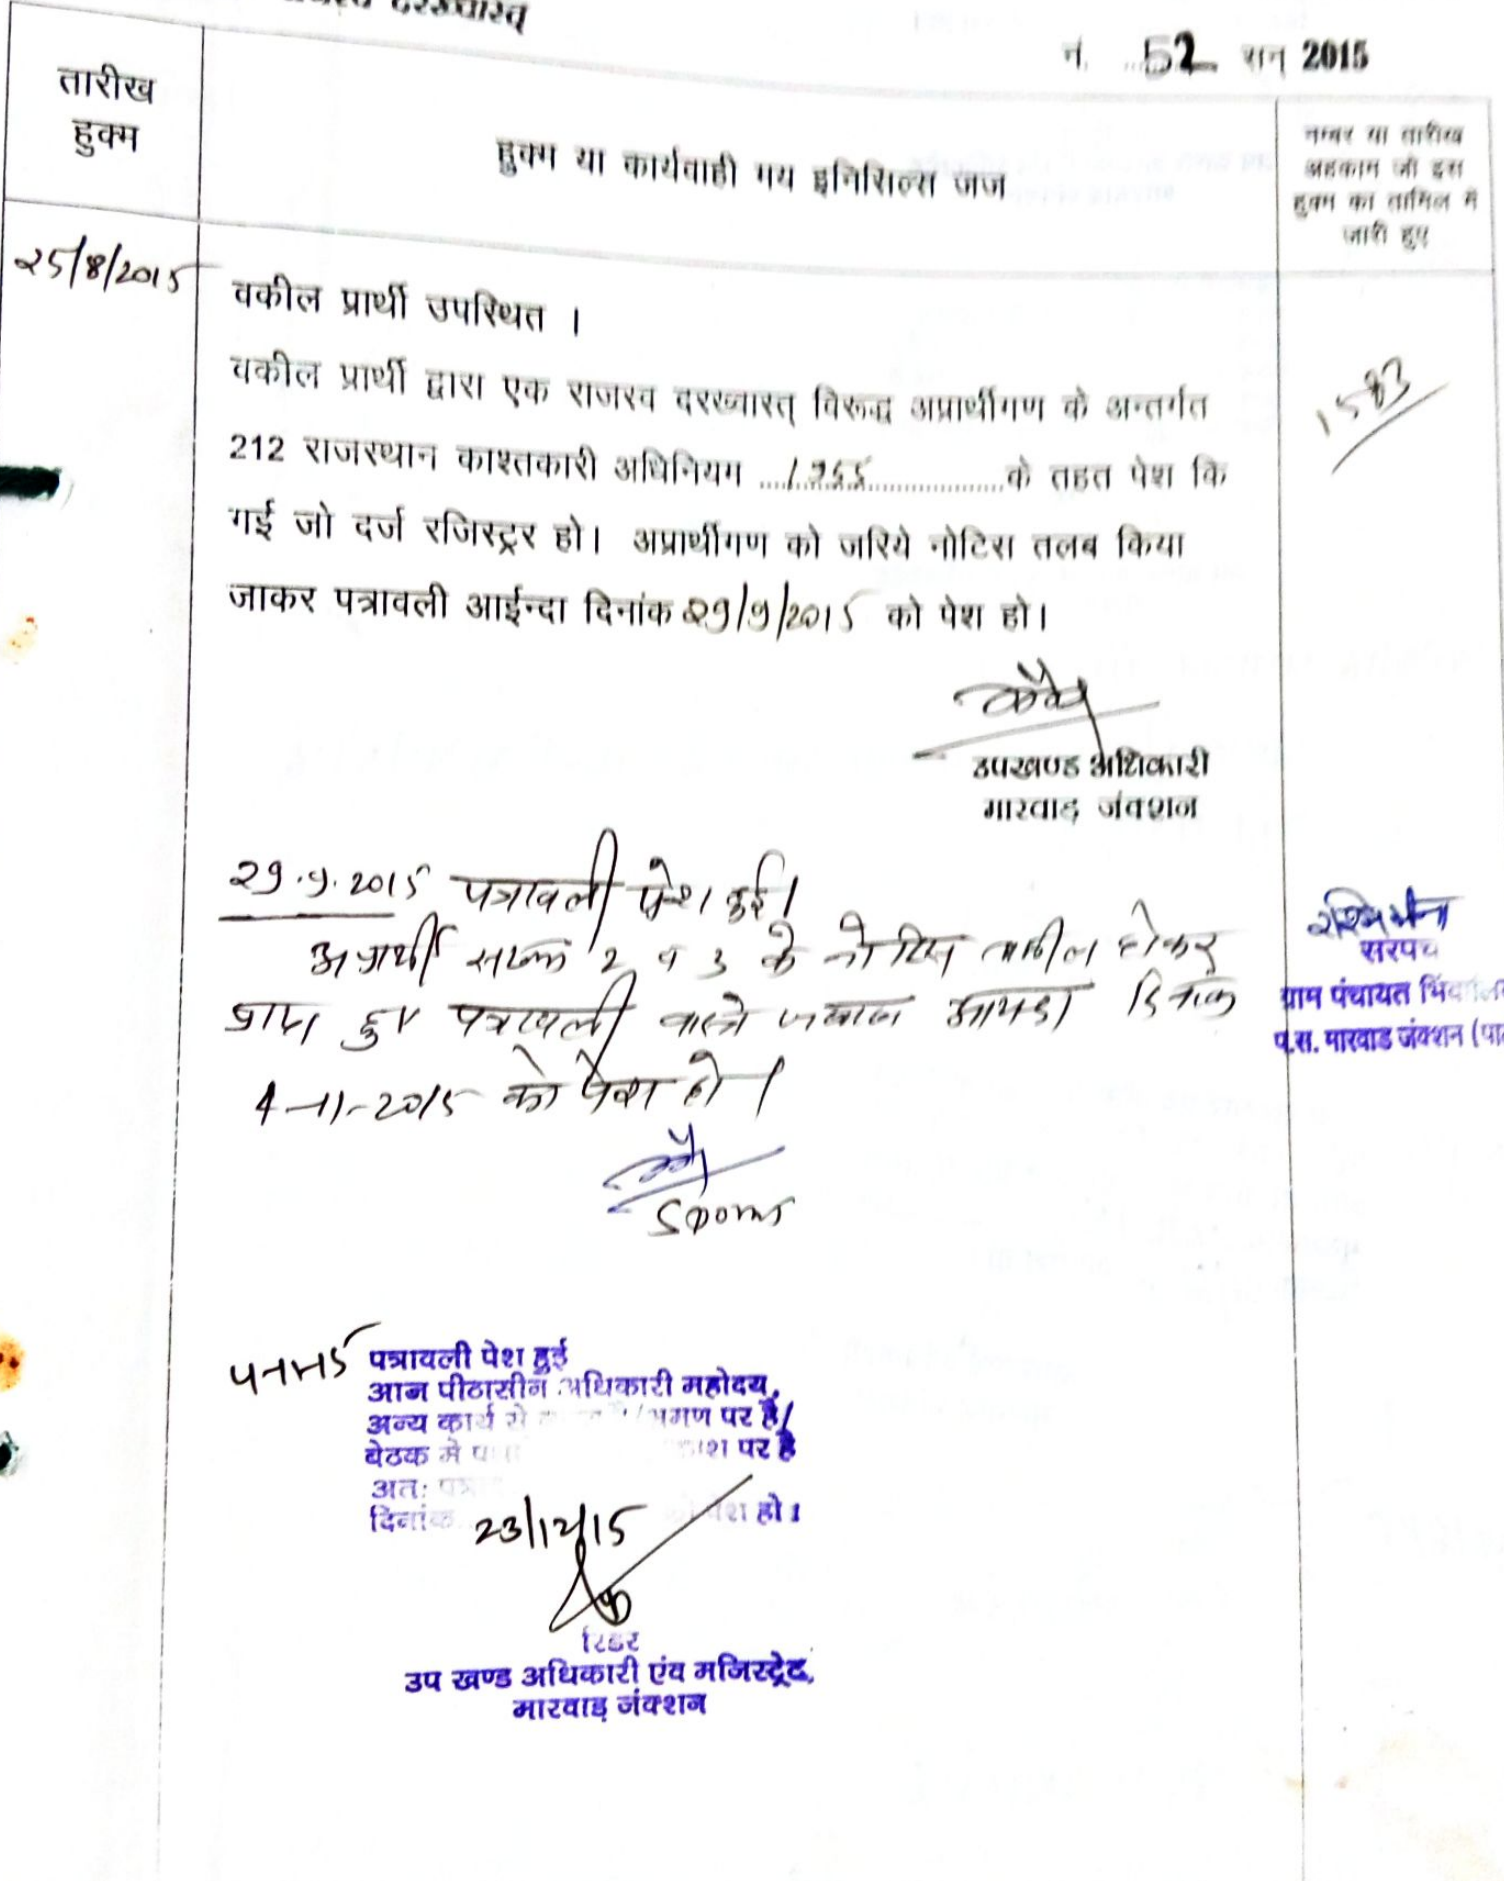 दरख्वास्त्
नं. 52 सन् 2015
तारीख
हुक्म
हुक्म या कार्यवाही मय इनिसिल्स जज
नम्बर या तारीख
अहकाम जो इस
हुक्म का तामिल में
जारी हुए
25/8/2015
वकील प्रार्थी उपस्थित ।
वकील प्रार्थी द्वारा एक राजस्व दरख्वास्त् विरूद्ध अप्रार्थीगण के अन्तर्गत
1583
212 राजस्थान काश्तकारी अधिनियम ....1955....................के तहत पेश कि
गई जो दर्ज रजिस्ट्रर हो। अप्रार्थीगण को जरिये नोटिस तलब किया
जाकर पत्रावली आईन्दा दिनांक 29/9/2015 को पेश हो।
उपखण्ड अधिकारी
मारवाड़ जंक्शन
29.9.2015 पत्रावली पेश हुई।
अप्रार्थी संख्या 2 व 3 के नोटिस तामील होकर
प्राप्त हुए पत्रावली वास्ते जबाब आयन्दा दिनांक
4-11-2015 को पेश हो।
सरपंच
ग्राम पंचायत
प.स. मारवाड जंक्शन (पा
4-11-15 पत्रावली पेश हुई
आज पीठासीन अधिकारी महोदय,
अन्य कार्य से भ्रमण पर है/
बेठक मे पर है
अतः
दिनांक 23/12/15 पेश हो।
रिडर
उप खण्ड अधिकारी एंव मजिस्ट्रेट,
मारवाड़ जंक्शन